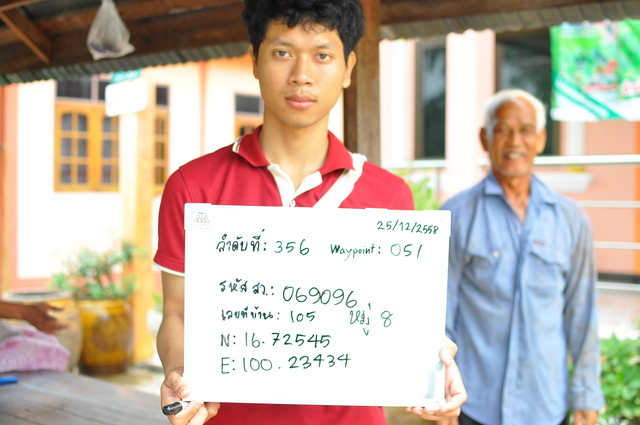 25/12/2558
ลำดับที่: 356 Waypoint: 051
รหัส สว.: 069096
เลขที่บ้าน: 105 หมู่ 8
N: 16.72545
E: 100.23434